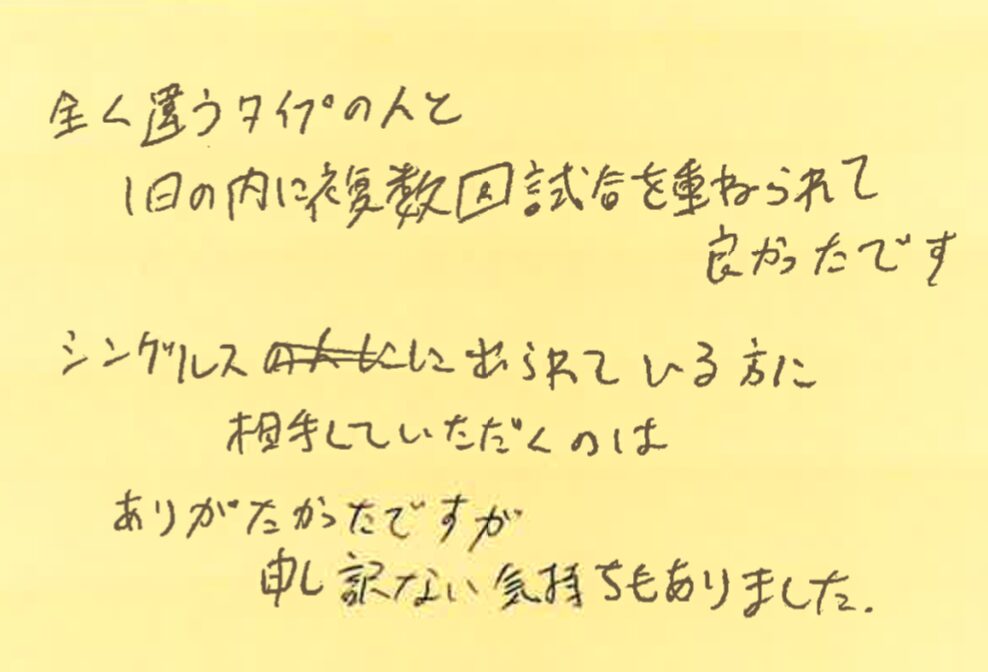 全く違うタイプの人と
1日の内に複数回試合を重ねられて
良かったです
シングルスに出られている方に
相手していただくのは
ありがたかったですが
申し訳ない気持ちもありました.